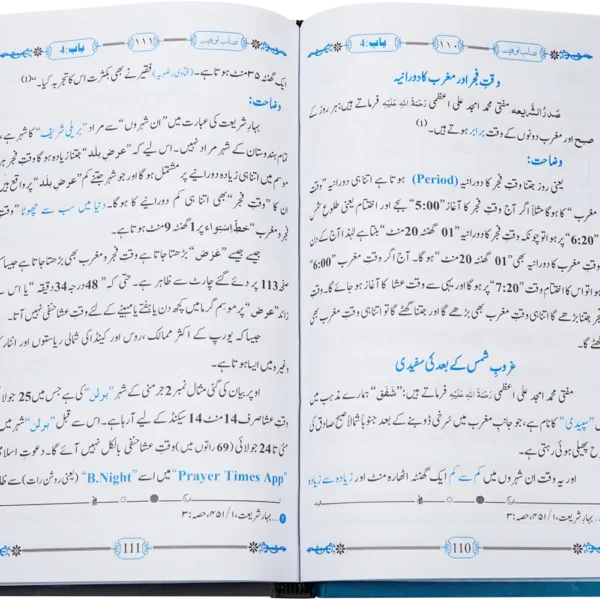 باب:4
۱۱۰
نصاب توقیت
وقتِ فجر اور مغرب کا دورانیہ
صَدرُ الشَّریعہ مفتی محمد امجد علی اعظمی رَحْمَۃُ اللّٰہِ عَلَیْہ فرماتے ہیں: ہر روز کے
صبح اور مغرب دونوں کے وقت برابر ہوتے ہیں۔(1)
وضاحت:
یعنی روز جتنا وقتِ فجر کا دورانیہ (Period) ہوتا ہے اتنا ہی دورانیہ "وقتِ
مغرب" کا ہوگا مثلاً اگر آج وقتِ فجر کا آغاز "5:00" بجے اور اختتام یعنی طلوعِ شمس
"6:20" پر ہوا تو چونکہ وقتِ فجر کا دورانیہ "01 گھنٹہ 20 منٹ" بنتا ہے لہٰذا آج کے دن
مغرب کا دورانیہ بھی "01 گھنٹہ 20 منٹ" ہوگا۔ آج اگر وقتِ مغرب "6:00"
ہوا تو اس کا اختتام وقت "7:20" پر ہوگا اور یہی سے وقتِ عشا کا آغاز ہو جائے گا۔
فجر جتنا بڑھے گا اتنا ہی وقتِ مغرب بھی بڑھے گا اور جتنا گھٹے گا تو اتنا ہی وقتِ مغرب بھی
گھٹے گا۔
غروبِ شمس کے بعد کی سفیدی
مفتی محمد امجد علی اعظمی رَحْمَۃُ اللّٰہِ عَلَیْہ فرماتے ہیں: "شَفَق" ہمارے مذہب میں
"سپیدی" کا نام ہے، جو جانبِ مغرب میں سُرخی ڈوبنے کے بعد جنوباً شمالاً صبح صادق کی
طرح پھیلی ہوئی رہتی ہے۔
اور یہ وقت ان شہروں میں کم سے کم ایک گھنٹہ اٹھارہ منٹ اور زیادہ سے زیادہ
بہار شریعت، ۱/۴۵۱، حصہ:۳
110
باب:4
۱۱۱
نصاب توقیت
ایک گھنٹہ ۳۵ منٹ ہوتا ہے۔ (فتاویٰ رضویہ) فقیر نے بھی بکثرت اس کا تجربہ کیا۔"(1)
وضاحت:
بہارِ شریعت کی عبارت میں "ان شہروں" سے مراد "بریلی شریف" کا شہر ہے،
تمام ہندوستان کے شہر مراد نہیں۔ اس لیے کہ "عرضِ بلد" جتنا زیادہ ہوگا وقتِ فجر ہر
موسم میں اتنا ہی زیادہ دورانیے پر مشتمل ہوگا اور جو شہر جتنے کم "عرضِ بلد" پر واقع ہیں
ان کا "وقتِ فجر" بھی اتنا ہی کم دورانیے کا ہوگا۔ دنیا میں سب سے چھوٹا "وقتِ
فجر و مغرب" خطِ اِستِواء پر 1 گھنٹہ 9 منٹ ہوتا ہے۔
جیسے جیسے "عَرْض" بڑھتا جاتا ہے وقتِ فجر و مغرب بھی بڑھتا جاتا ہے جیسا کہ
صفحہ 113 پر دئے گئے چارٹ سے ظاہر ہے۔ حتی کہ "48 درجہ 34 دقیقہ" یا اس سے
زائد "عرض" پر موسمِ گرما میں کچھ دن یا ہفتے یا مہینے کے لئے وقتِ عشا حنفی نہیں آتا۔
جیسا کہ یورپ کے اکثر ممالک، روس اور کینڈا کی شمالی ریاستوں اور
وغیرہ میں ایسا ہوتا ہے۔
اوپر بیان کی گئی مثال نمبر 2 جرمنی کے شہر "برلن" کی ہے جس میں 25 جولائی
وقتِ عشا صرف 14 منٹ 14 سیکنڈ کے لیے آ رہا ہے۔ اس سے قبل "برلن" شہر میں
مئی تا 24 جولائی (69 راتوں میں) وقتِ عشا حنفی بالکل نہیں آئے گا۔ دعوتِ اسلامی
"Prayer Times App" میں اسے "B.Night" (یعنی روشن رات) سے ظاہر
1 بہار شریعت، ۱/۴۵۱، حصہ:۳
111